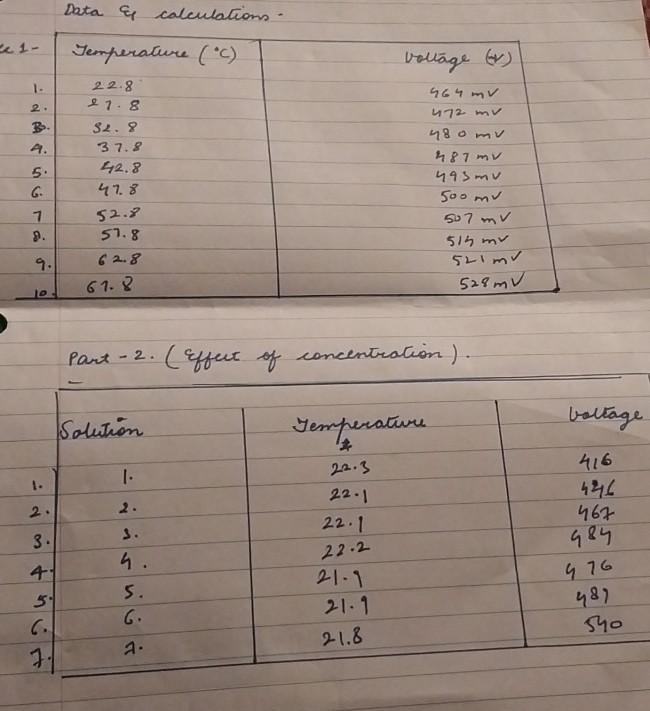 Data & calculations -
1- Temperature (°C) Voltage (V)
1. 22.8 464 mV
2. 27.8 472 mV
3. 32.8 480 mV
4. 37.8 487 mV
5. 42.8 493 mV
6. 47.8 500 mV
7 52.8 507 mV
8. 57.8 514 mV
9. 62.8 521 mV
10. 67.8 528 mV
Part - 2. (Effect of concentration).
Solution Temperature Voltage
1. 1. 22.3 416
2. 2. 22.1
3. 3. 22.1 467
4. 4. 22.2 484
5. 5. 21.9 476
6. 6. 21.9 487
7. 7. 21.8 540